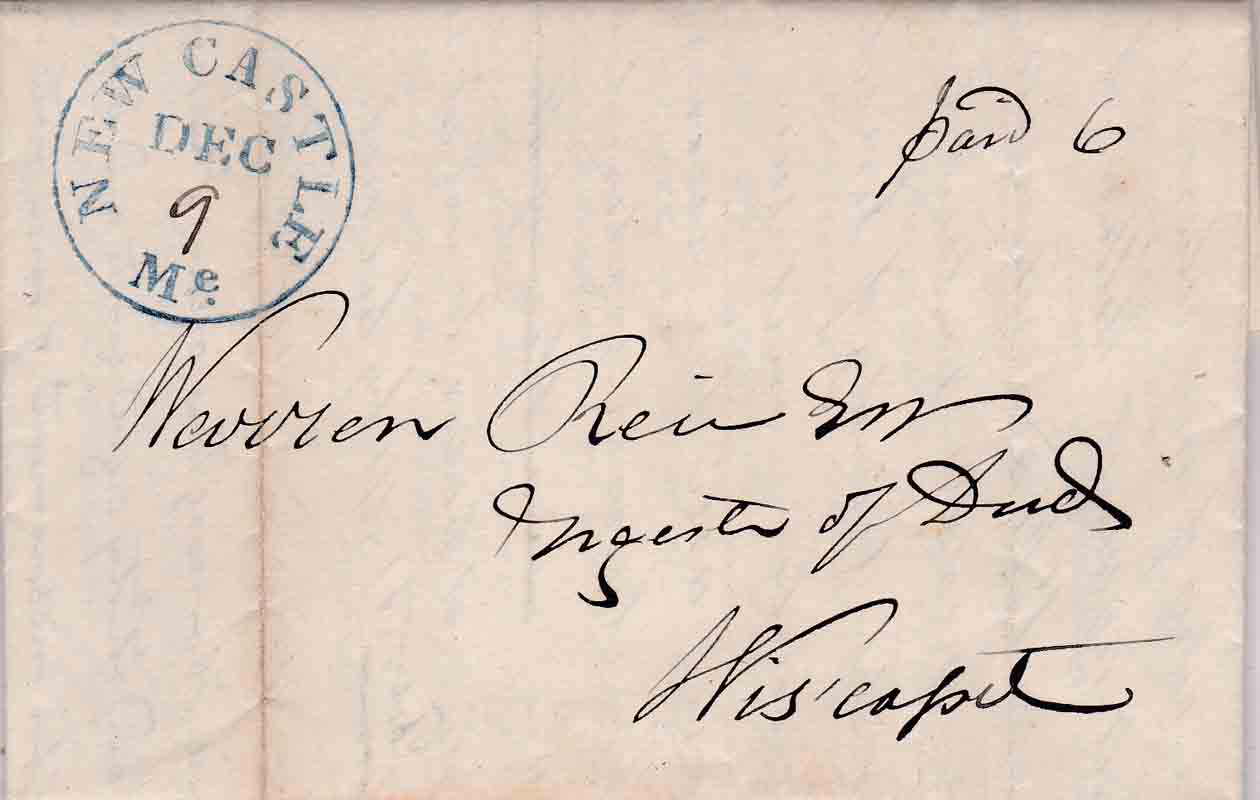 NEW CASTLE
DEC
9
Me.
paid 6
Warren Rice Esq
Register of Deeds
Wiscasset